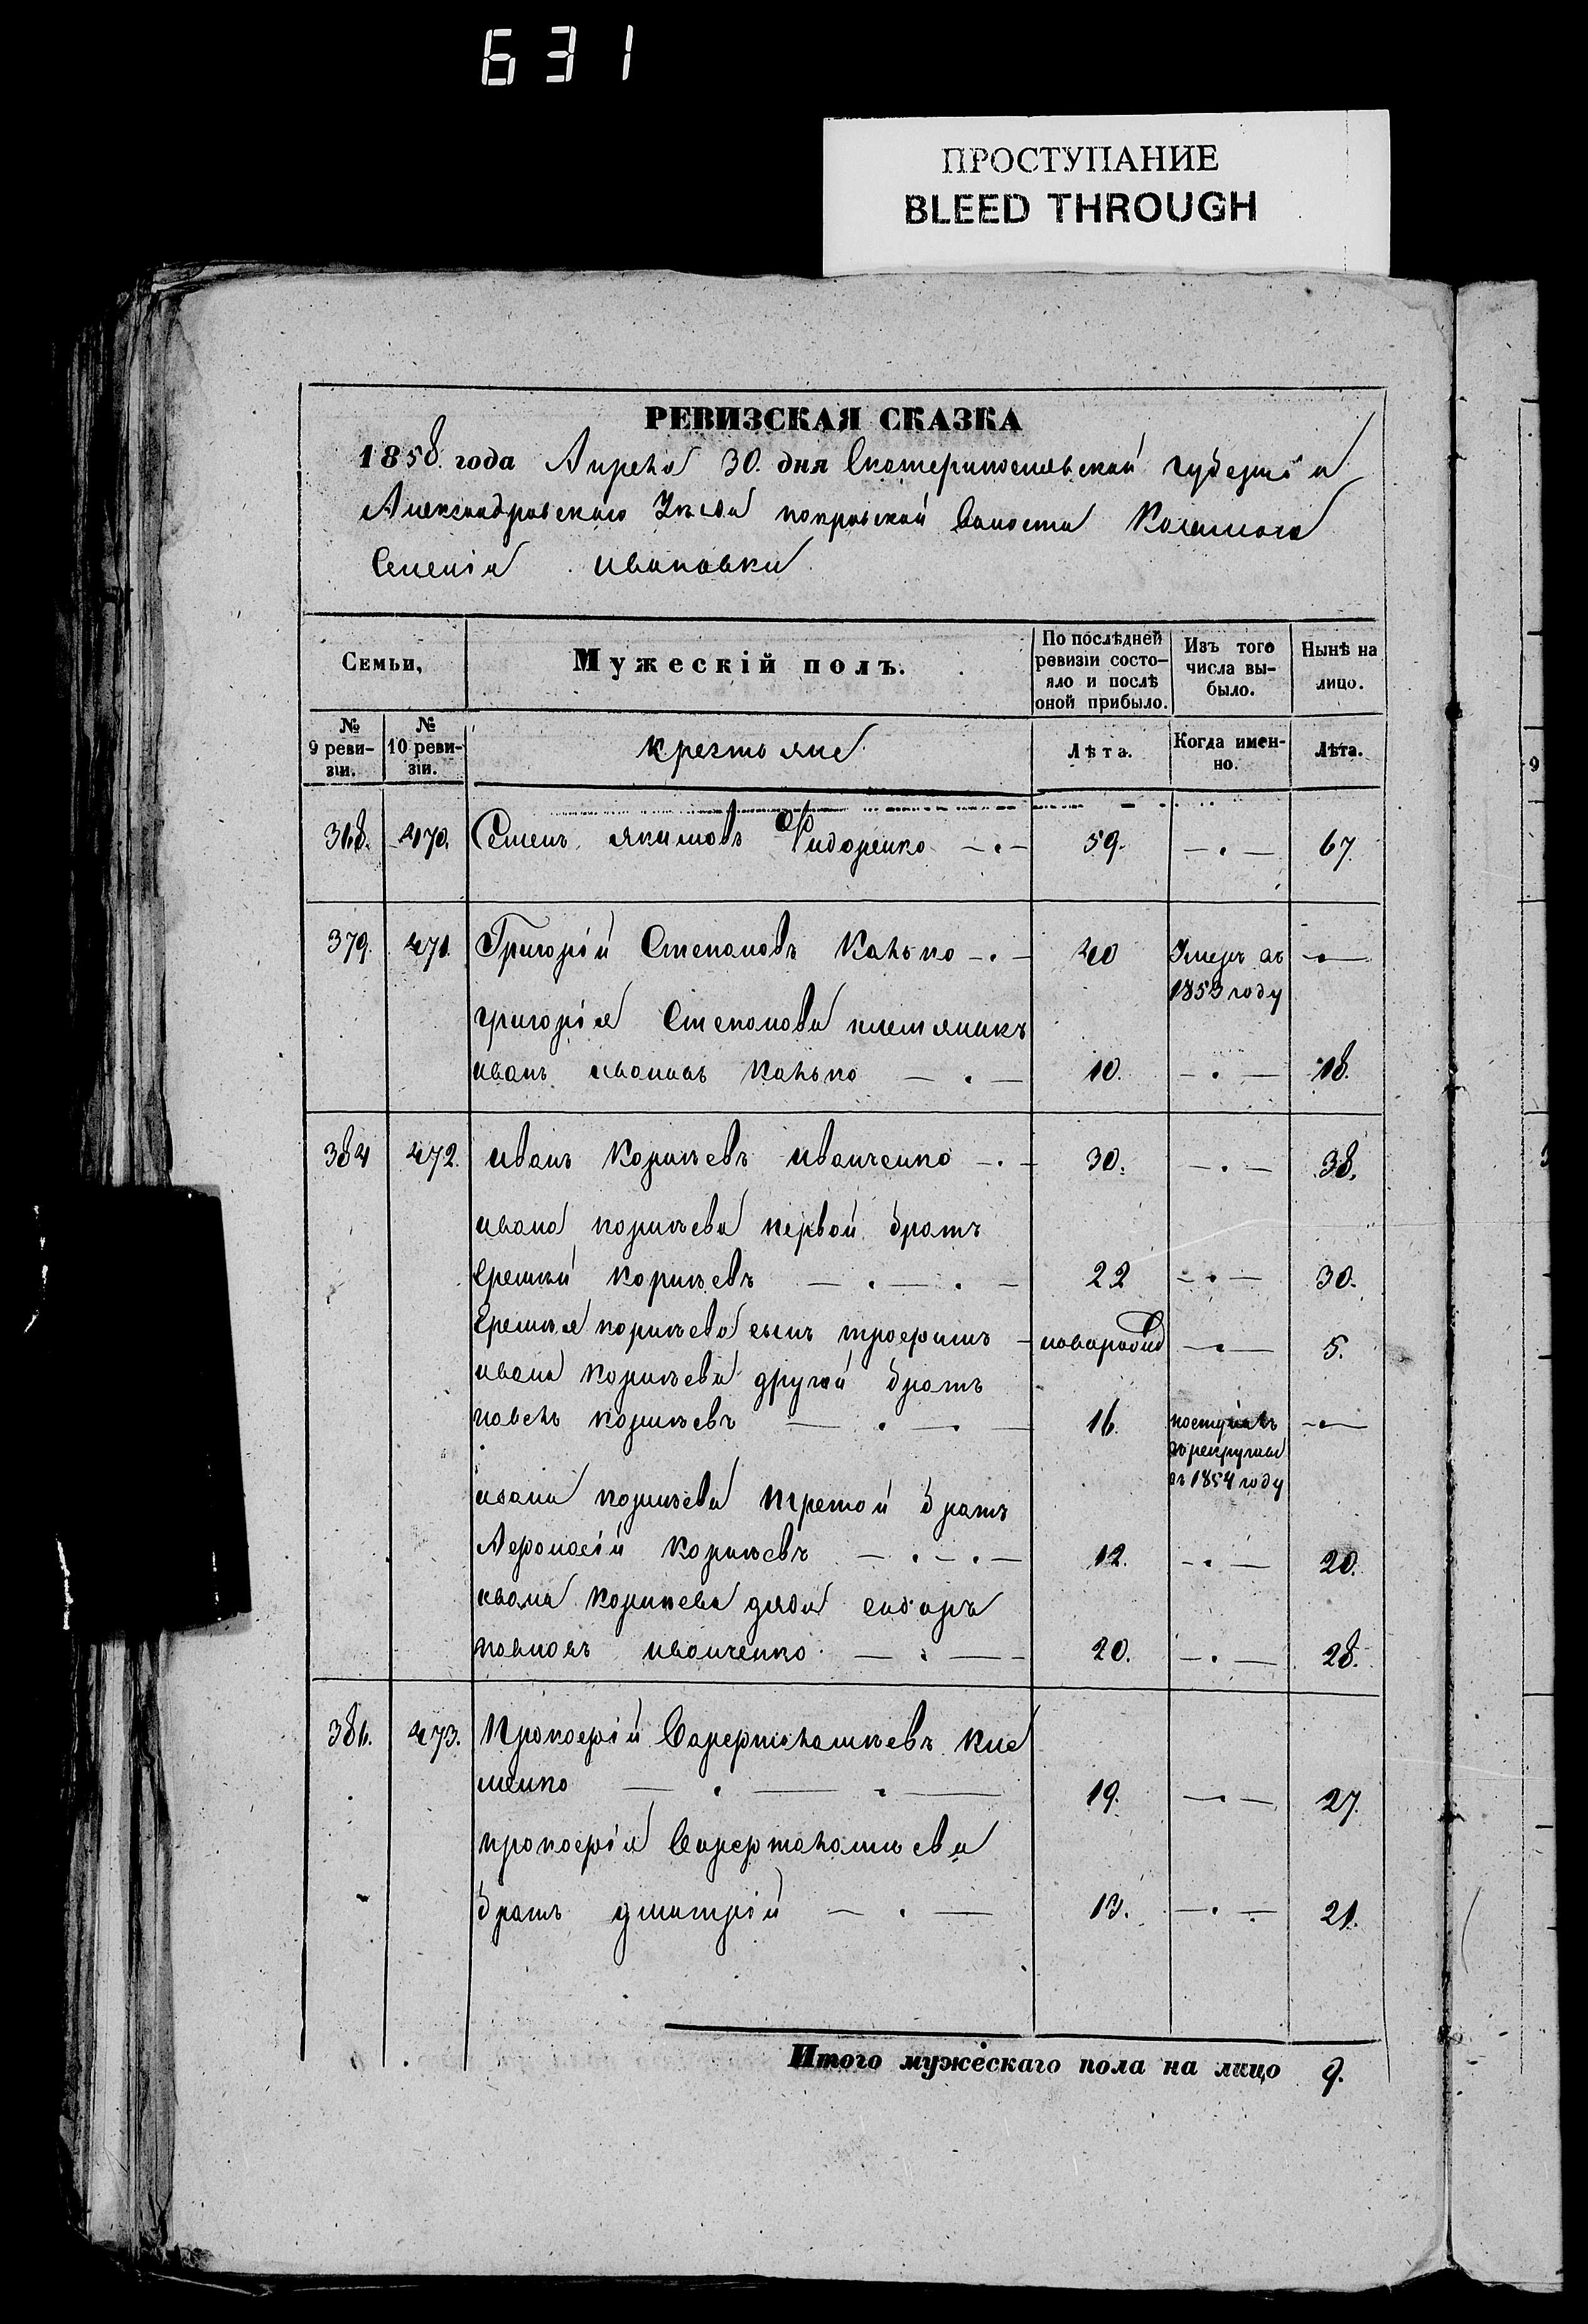 631
ПРОСТУПАНИЕ
BLEED THROUGH
РЕВИЗСКАЯ СКАЗКА
1858. года Апреля 30. дня Екатеринославской губернии
Александровского Уезда покровской Волости Казенного
Селенія ивановки
Семьи, Мужескій полъ. По послѣдней ревизіи состо- яло и послѣ оной прибыло. Изъ того числа вы- было. Нынѣ на лицо.
№ 9 реви- зіи. № 10 реви- зіи. крестьяне Лѣта. Когда имен- но. Лѣта.
368. 470. Семенъ якимовъ Фидоренко 59. 67.
379. 471. Григорій Степановъ Калько 40 Умеръ въ
1853 году
григорія Степанова племяникъ
иванъ ивановъ Калько 10. 18.
384 472. иванъ Корнѣевъ иванченко 30. 38.
ивана корнѣева первой братъ
Еремѣй корнѣевъ 22 30.
Еремѣя корнѣева сынъ трофимъ новорожд 5.
ивана корнѣева другой братъ
павелъ корнѣевъ 16. поступилъ
в рекруты
въ 1854 году
ивана корнѣева третой братъ
Афонасій Корнѣевъ 12. 20.
ивана Корнѣева дядя сидоръ
павловъ иванченко 20. 28.
386. 473. Прокофій Варфтоломѣевъ Кле
менко 19. 27.
прокофія Варфтоломѣева
братъ дмитрій 13. 21.
Итого мужескаго пола на лицо 9.